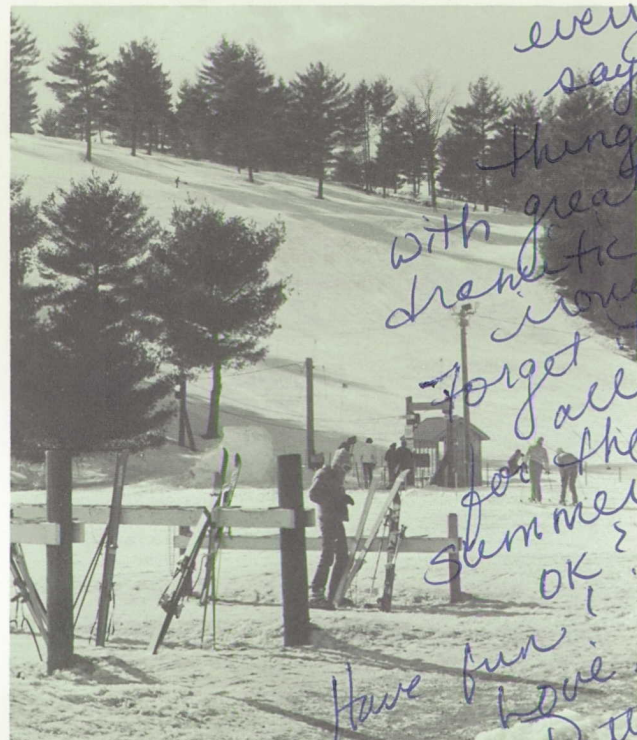 every
say
thing
with grea
dramatic
irony
Forget
all
for the
summer
OK?
Have fun!
Love